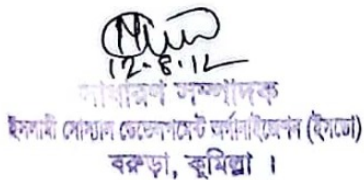 12-8-12
সাধারণ সম্পাদক
ইসলামী সোস্যাল ডেভেলপমেন্ট অর্গানাইজেশন (ইসডো)
বরুড়া, কুমিল্লা ।